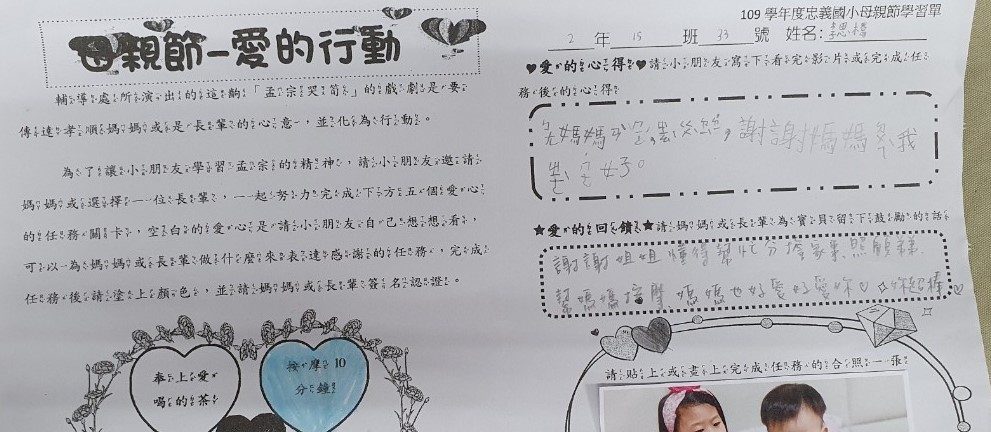 母親節－愛的行動
輔導處所演出的這齣「孟宗哭筍」的戲劇是要
傳達孝順媽媽或是長輩的心意，並化為行動。
為了讓小朋友學習孟宗的精神，請小朋友邀請
媽媽或選擇一位長輩，一起努力完成下方五個愛心
的任務關卡，空白的愛心是請小朋友自己想想看，
可以為媽媽或長輩做什麼來表達感謝的任務，完成
任務後請塗上顏色，並請媽媽或長輩簽名認證。
奉上愛
喝的茶
按摩 10
分鐘
109 學年度忠義國小母親節學習單
2 年 15 班 33 號 姓名:
♥愛的心得♥請小朋友寫下看完影片或完成任
務後的心得
媽媽 ，謝謝媽媽 我
好。
★愛的回饋★請媽媽或長輩為寶貝留下鼓勵的話
謝謝姐姐懂得幫忙分擔家事照顧妹
幫媽媽按摩 媽媽也好愛好愛妳♡ 妳超棒
請貼上或畫上完成任務的合照一張